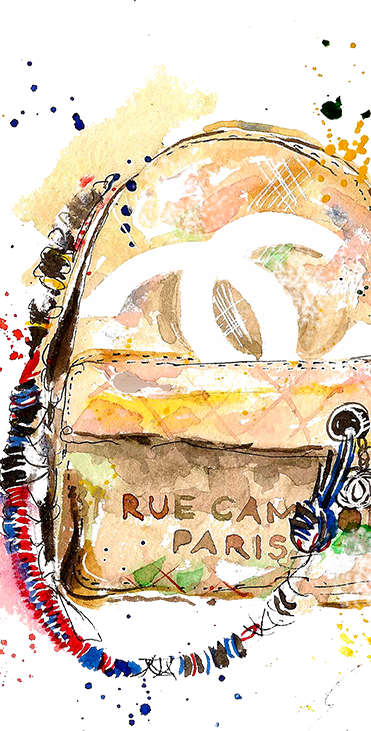 31 RUE CAM
PARIS